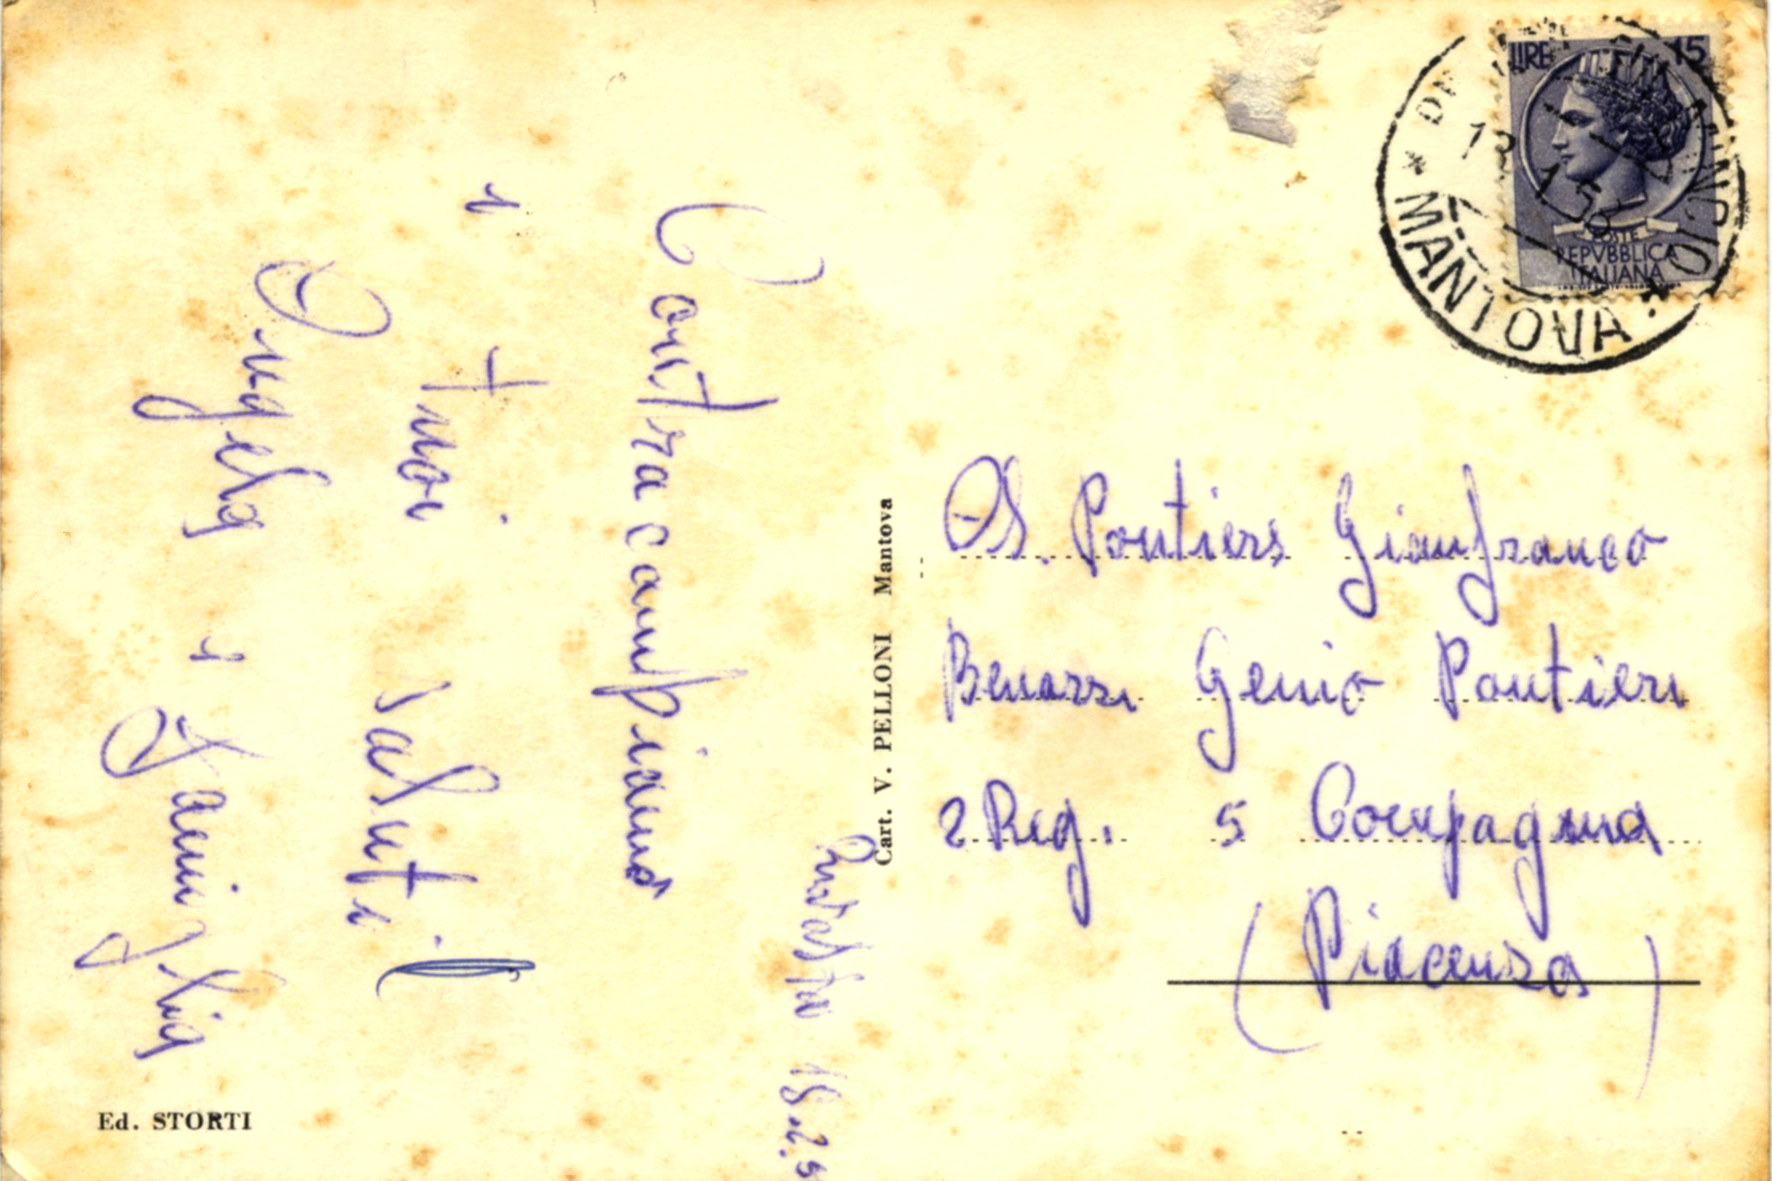 Rivalta 13.2.5
Contracambiamo
i tuoi saluti
Angela e Famiglia
Ed. STORTI
Cart. V. PELLONI Mantova
LIRE 15
POSTE
REPVBBLICA
ITALIANA
MANTOVA
AS. Pontiere Gianfranco
Benazzi Genio Pontieri
2 Reg. 5 Compagnia
(Piacenza)